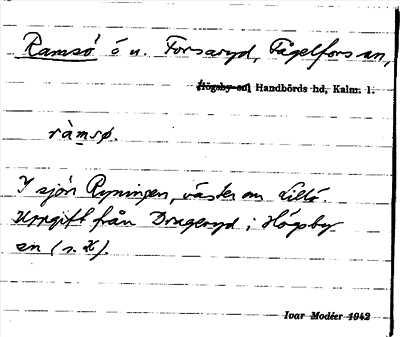 Ramsö ö u. Forsaryd, Fågelfors sn,
Högsby sn, Handbörds hd, Kalm. l.
ràmsø.
I sjön Ryningen, väster om Lillö.
Uppgift från Drageryd i Högsby
sn (s. K).
Ivar Modéer 1942